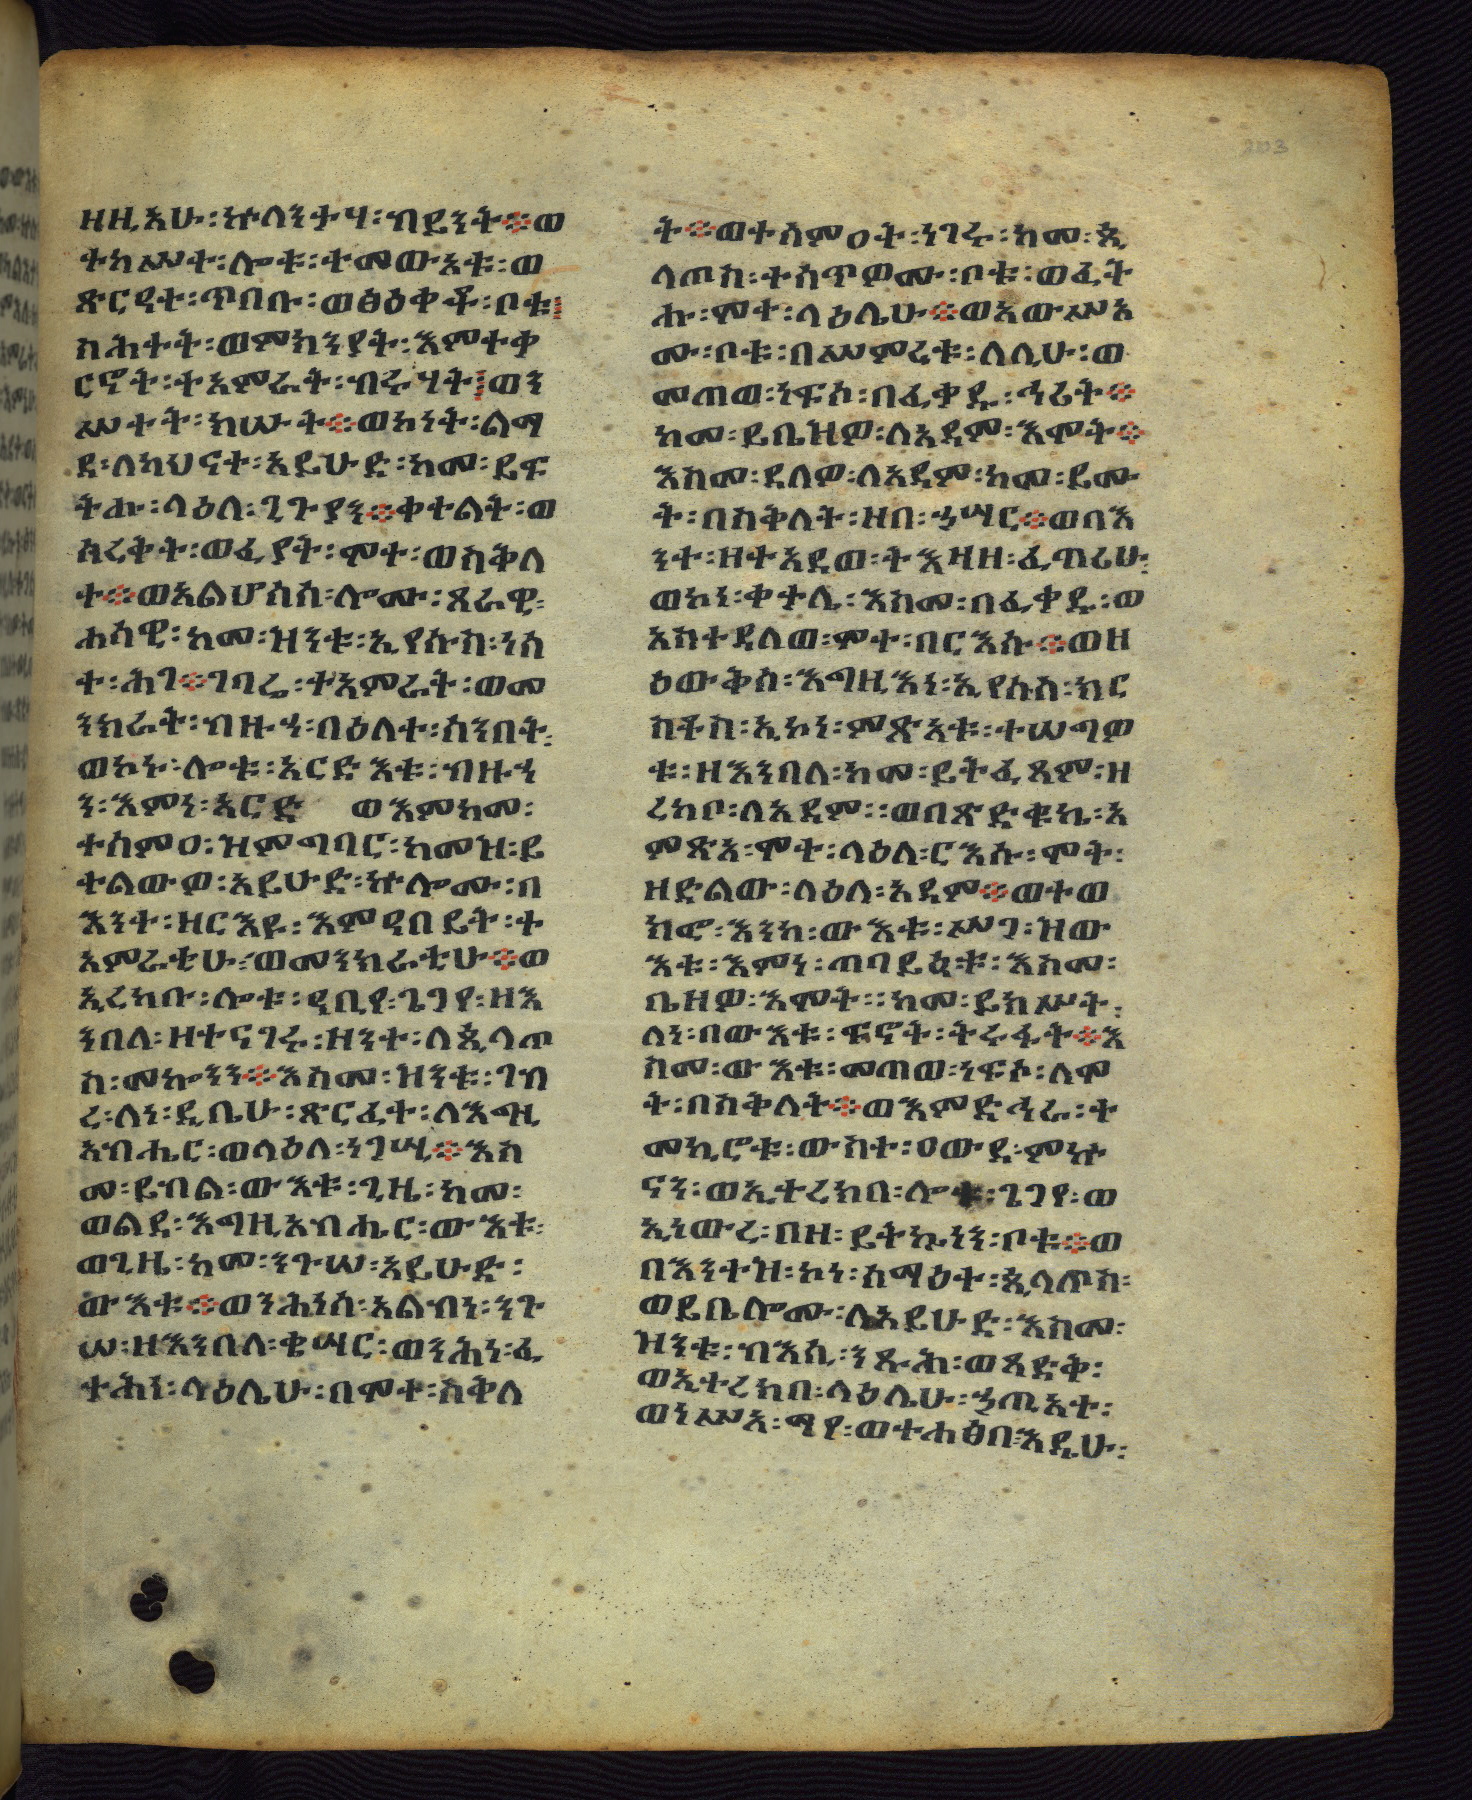 ዘዚአሁ፡ኵለንታሃ፡ብይንት፨ወ
ተከሥተ፡ሎቱ፡ተመውኦቱ፡ወ
ጽርዳተ፡ጥበቡ፡ወፅዕቀቶ፡ቦቱ፤
ስሕተት፡ወምክንያት፡እምተቀ
ርኖት፡ተአምራት፡ብሩሃት፤ወን
ሥተት፡ክሡት፨ወከነት፡ልማ
ደ፡ለካህናተ፡አይሁድ፡ከመ፡ይፍ
ትሑ፡ላዕለ፡ጊጉያን፨ቀተልት፡ወ
ሰረቅት፡ወፈያት፡ሞተ፡ወስቅለ
ተ፨ወአልሆሰሰ፡ሎሙ፡ጸራዊ፡
ሐሳዊ፡ከመ፡ዝንቱ፡ኢየሱስ፡ነስ
ተ፡ሕገ፨ገባሬ፡ተአምራት፡ወመ
ንክራት፡ብዙኃ፡በዕለተ፡ሰንበት፡
ወኮኑ፡ሎቱ፡አርድእቱ፡ብዙኃ
ን፡እምነ፡አርድ ወእምከመ፡
ተሰምዐ፡ዝምግባር፡ከመዝ፡ይ
ተልውዎ፡አይሁድ፡ኵሎሙ፡በ
እንተ፡ዘርእዩ፡እምዳበይት፡ተ
አምራቲሁ፡ወመንክራቲሁ፨ወ
ኢረከቡ፡ሎቱ፡ዲቢየ፡ጌጋየ፡ዘእ
ንበለ፡ዘተናገሩ፡ዘንተ፡ለጲላጦ
ስ፡መኰንን፨እስመ፡ዝንቱ፡ገብ
ረ፡ለነ፡ዲቤሁ፡ጽርፈተ፡ለእግዚ
አብሔር፡ወላዕለ፡ነገሢ፨እስ
መ፡ይብል፡ውእቱ፡ጊዜ፡ከመ፡
ወልደ፡እግዚአብሔር፡ውእቱ፡
ወጊዜ፡ከመ፡ንጉሠ፡አይሁድ፡
ውእቱ፨ወንሕነሰ፡አልብነ፡ንጉ
ሠ፡ዘእንበለ፡ቄሣር፡ወንሕነ፡ፈ
ተሕነ፡ላዕሌሁ፡በሞተ፡ስቅለ
ት፨ወተሰምዐት፡ነገሩ፡ከመ፡ጲ
ላጦስ፡ተሰጥዎሙ፡ቦቱ፡ወፈት
ሑ፡ሞተ፡ላዕሌሁ፨ወአውሥአ
ሙ፡ቦቱ፡በሥምረቱ፡ለሊሁ፡ወ
መጠወ፡ነፍሶ፡በፈቃዱ፡ኃሪት፨
ከመ፡ይቤዝዎ፡ለአዳም፡እሞት፨
እስመ፡ደለዎ፡ለአዳም፡ከመ፡ይሙ
ት፡በስቅለት፡ዘበ፡ኃሣር፨ወበእ
ንተ፡ዘተአደወ፡ትእዛዘ፡ፈጣሪሁ፡
ወኮነ፡ቀታሊ፡እስመ፡በፈቃዱ፡ወ
አስተደለወ፡ሞተ፡በርእሱ፨ወዘ
ዕውቅሰ፡እግዚእነ፡ኢየሱስ፡ክር
ስቶስ፡ኢኮነ፡ምጽአቱ፡ተሠግዎ
ቱ፡ዘእንበለ፡ከመ፡ይትፈጸም፡ዘ
ረከቦ፡ለአዳም፡፡ወበጽድቁኬ፡አ
ምጽአ፡ሞት፡ላዕለ፡ርእሱ፡ሞት፡
ዘድልው፡ላዕለ፡አዳም፨ወተወ
ክፎ፡እንከ፡ውእቱ፡ሥጋ፡ዝው
እቱ፡እምነ፡ጠባይዒቱ፡እስመ፡
ቤዘዎ፡እሞት፡፡ከመ፡ይክሥት፡
ለነ፡በውእቱ፡ፍኖት፡ትሩፋት፨እ
ስመ፡ውእቱ፡መጠወ፡ነፍሶ፡ለሞ
ት፡በስቅለት፨ወእምድኃሬ፡ተ
መኪሮቱ፡ውስተ፡ዐውደ፡ምኵ
ናን፡ወኢተረክበ፡ሎቱ፡ጌጋየ፡ወ
ኢነውረ፡በዘ፡ይትኰነን፡ቦቱ፨ወ
በእንተዝ፡ኮነ፡ስማዕተ፡ጲላጦስ፡
ወይቤሎሙ፡ለአይሁድ፡እስመ፡
ዝንቱ፡ብእሲ፡ንጹሕ፡ወጻድቅ፡
ወኢተረክበ፡ላዕሌሁ፡ኃጢአተ፡
ወነሥአ፡ማየ፡ወተሐፅበ፡እዴሁ፡